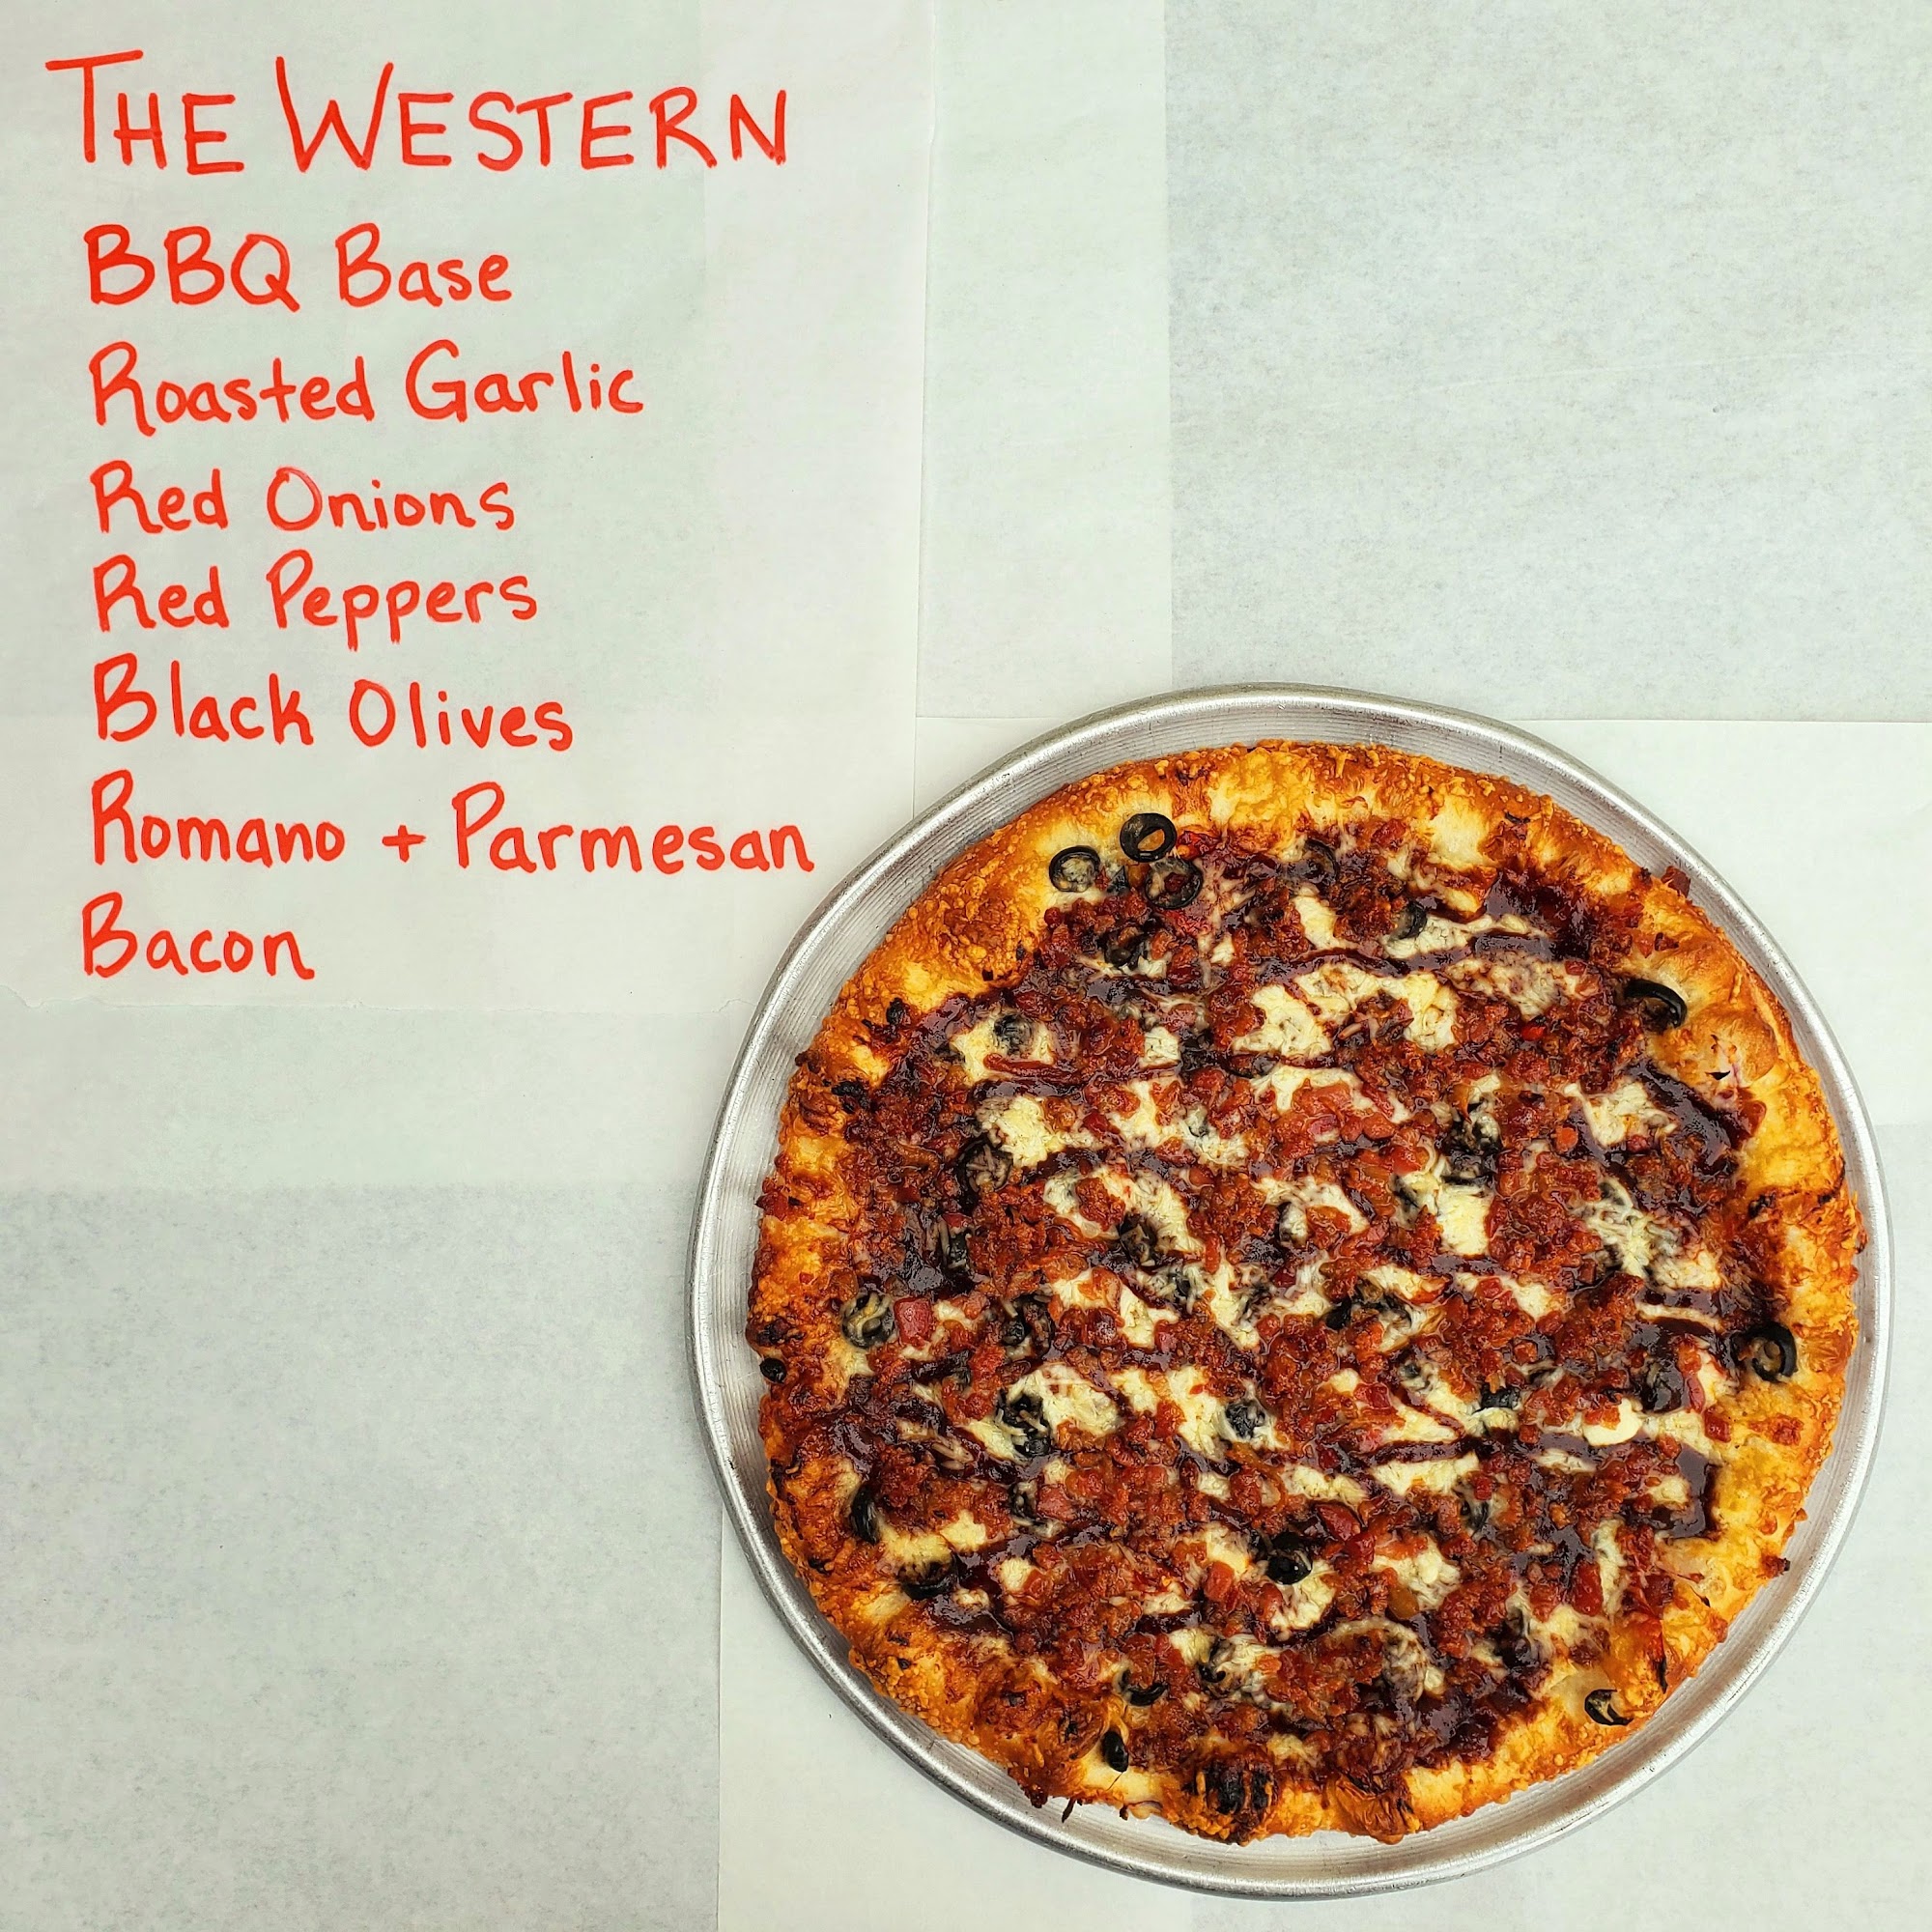 THE WESTERN
BBQ Base
Roasted Garlic
Red Onions
Red Peppers
Black Olives
Romano + Parmesan
Bacon